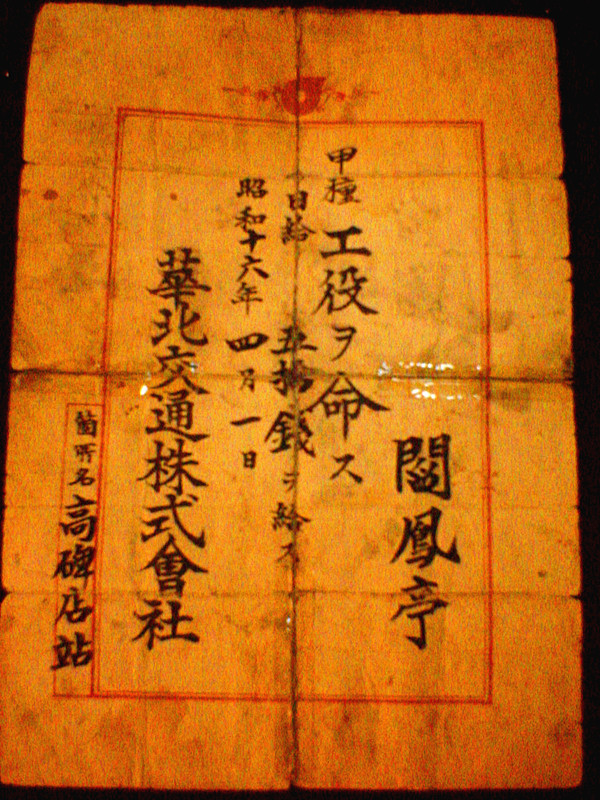 閻鳳亭
甲種 工役ヲ命ス
日給 五拾錢ヲ給ス
昭和十六年四月一日
華北交通株式會社
箇所名 高碑店站